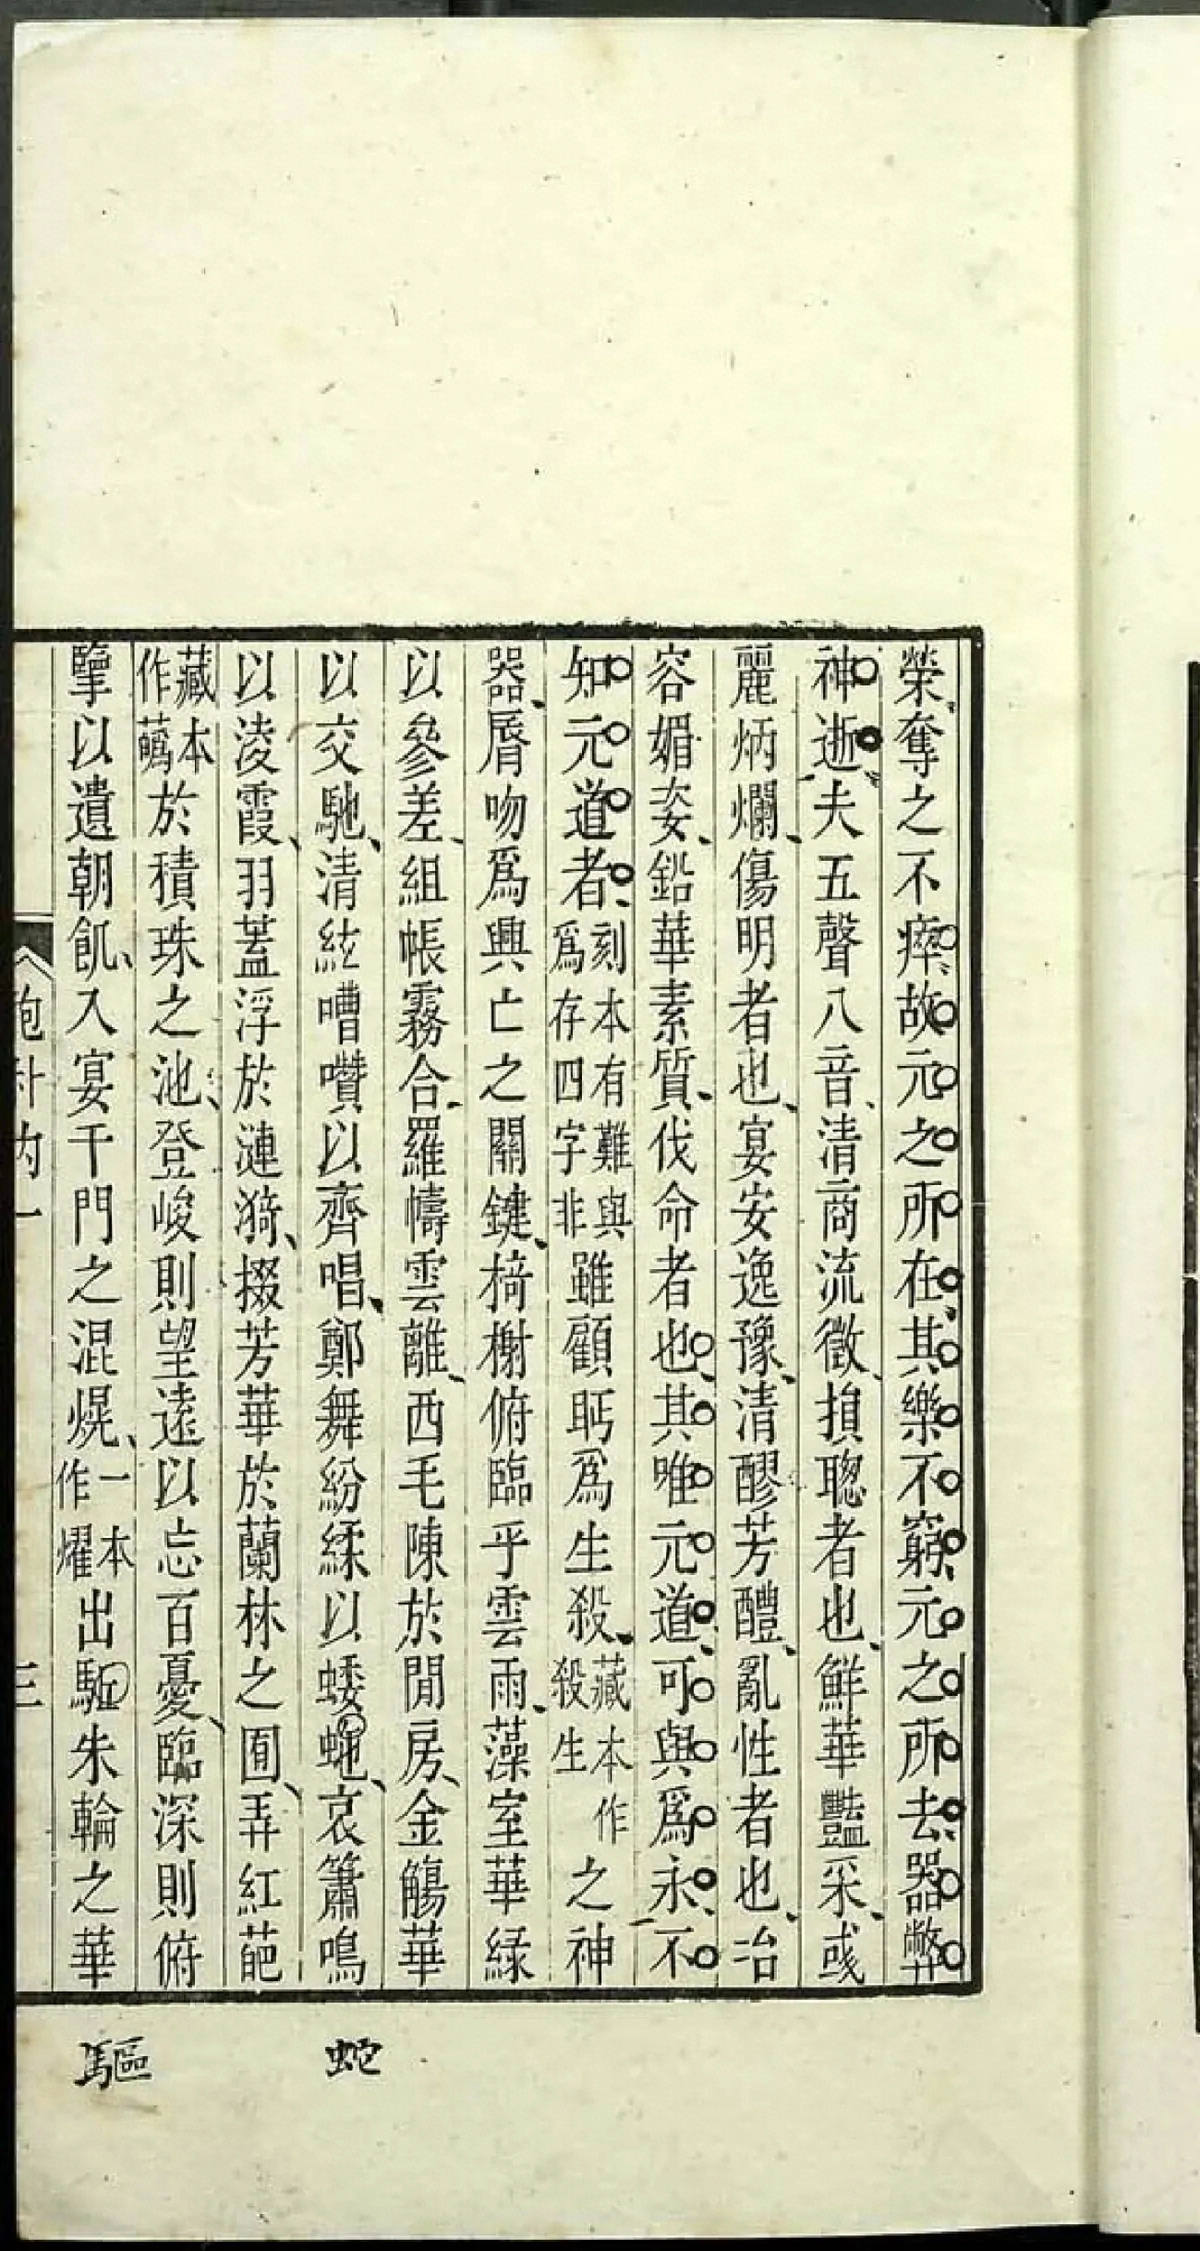 榮奪之不瘁故元之所在其樂不窮元之所去器弊
神逝夫五聲八音清商流徵損聰者也鮮華豔采彧
麗炳爛傷明者也宴安逸豫清醪芳醴亂性者也冶
容媚姿鉛華素質伐命者也其唯元道可與爲永不
知元道者刻本有難與爲存四字非雖顧眄爲生殺藏本作殺生之神
器脣吻爲興亡之關鍵榜榭俯臨乎雲雨藻室華綠
以參差組帳霧合羅幬雲離西毛陳於閒房金觴華
以交馳清絃嘈囋以齊唱鄭舞紛緌以蜲虵哀簫鳴
以淩霞羽蓋浮於漣漪掇芳華於蘭林之囿弄紅葩
藏本作蘤於積珠之池登峻則望遠以忘百憂臨深則俯
擥以遺朝飢入宴千門之混熀一本作燿出駈朱輪之華
抱朴內一
三
蛇
驅